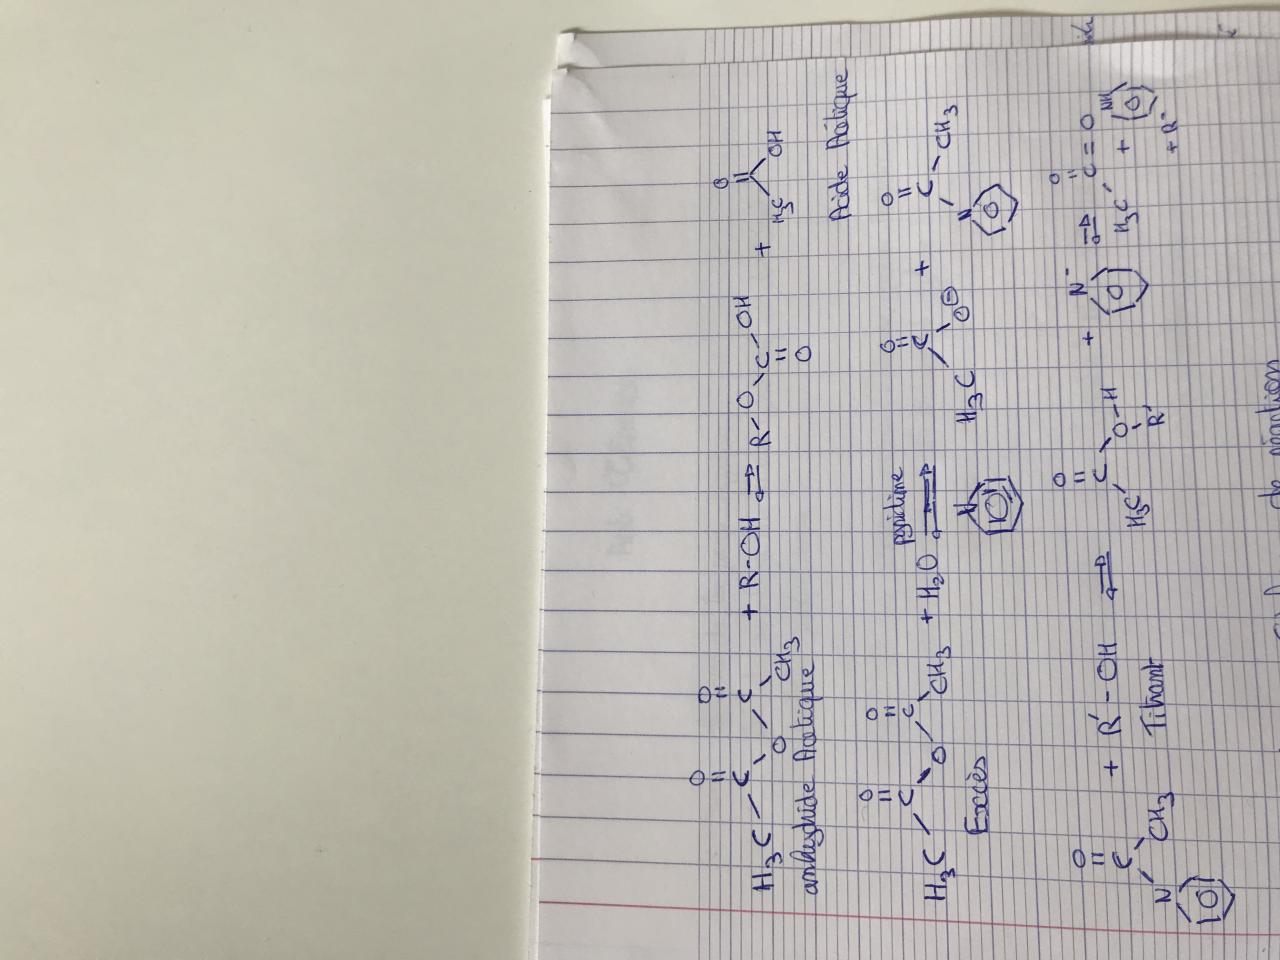 H₃C - C(=O) - O - C(=O) - CH₃ + R-OH ⇌ R - O - C(=O) - OH + H₃C C(=O) OH
anhydride Acétique
Acide Acétique
H₃C - C(=O) - O - C(=O) - CH₃ + H₂O ⇌ H₃C - C(=O) - O⊖ + N - C(=O) - CH₃
pyridine
N
Excès
N - C(=O) - CH₃ + R' - OH ⇌ H₃C - C(=O) - O - H R' + N⁻ ⇌ H₃C - C(=O) = O + NH + R⁻
Titrant
de réaction